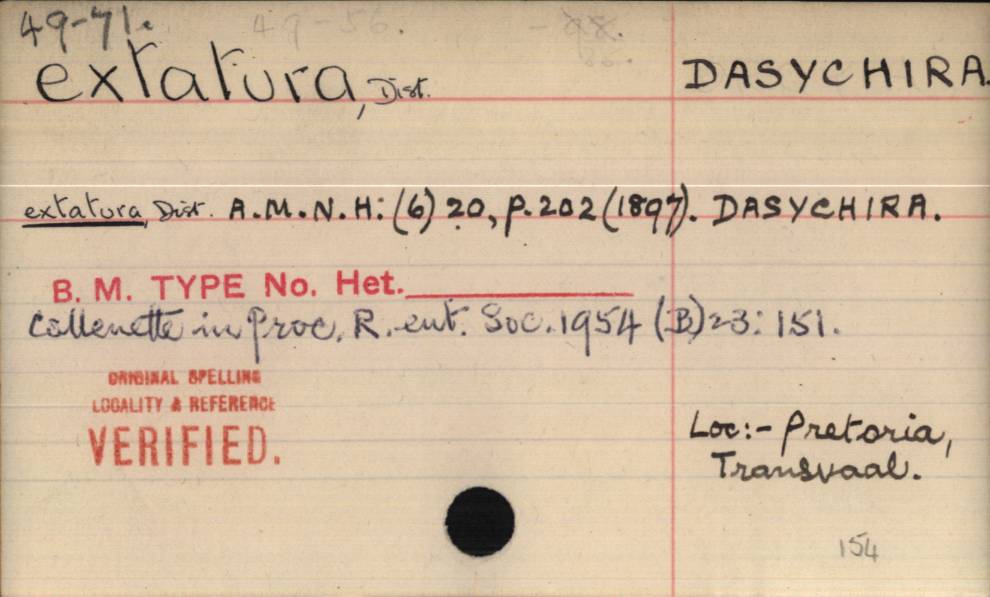 49-71. 49-56.
extatura, Dist. DASYCHIRA.
extatura, Dist. A.M.N.H: (6) 20, p. 202 (1897). DASYCHIRA.
B. M. TYPE No. Het.
Collenette in Proc. R. ent. Soc. 1954 (B) 23: 151.
ORIGINAL SPELLING
LOCALITY & REFERENCE
VERIFIED.
Loc:- Pretoria,
Transvaal.
154